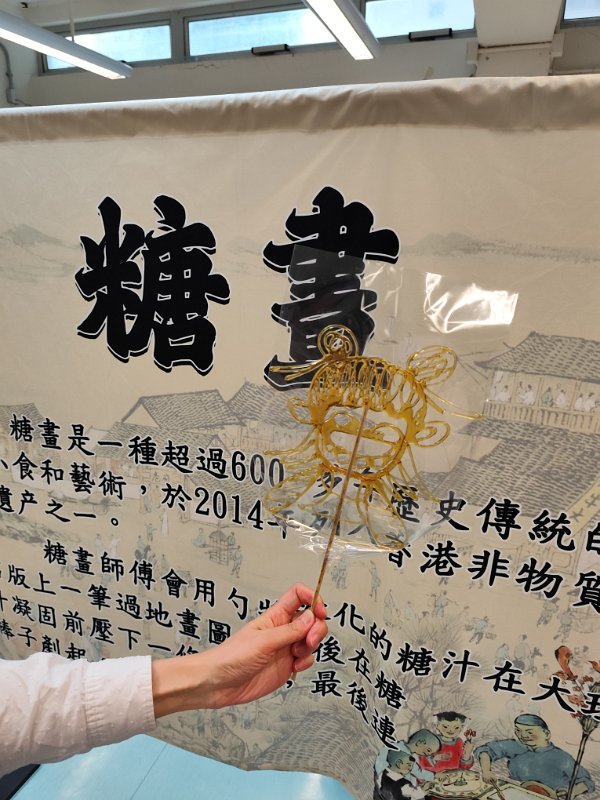 糖畫
糖畫是一種超過600多年歷史傳統的
小食和藝術，於2014年列入香港非物質
遺产之一。
糖畫師傅會用勺將 化的糖汁在大
版上一筆過地畫圖 後在糖
汁凝固前壓下一 ，最後連
棒子剷起